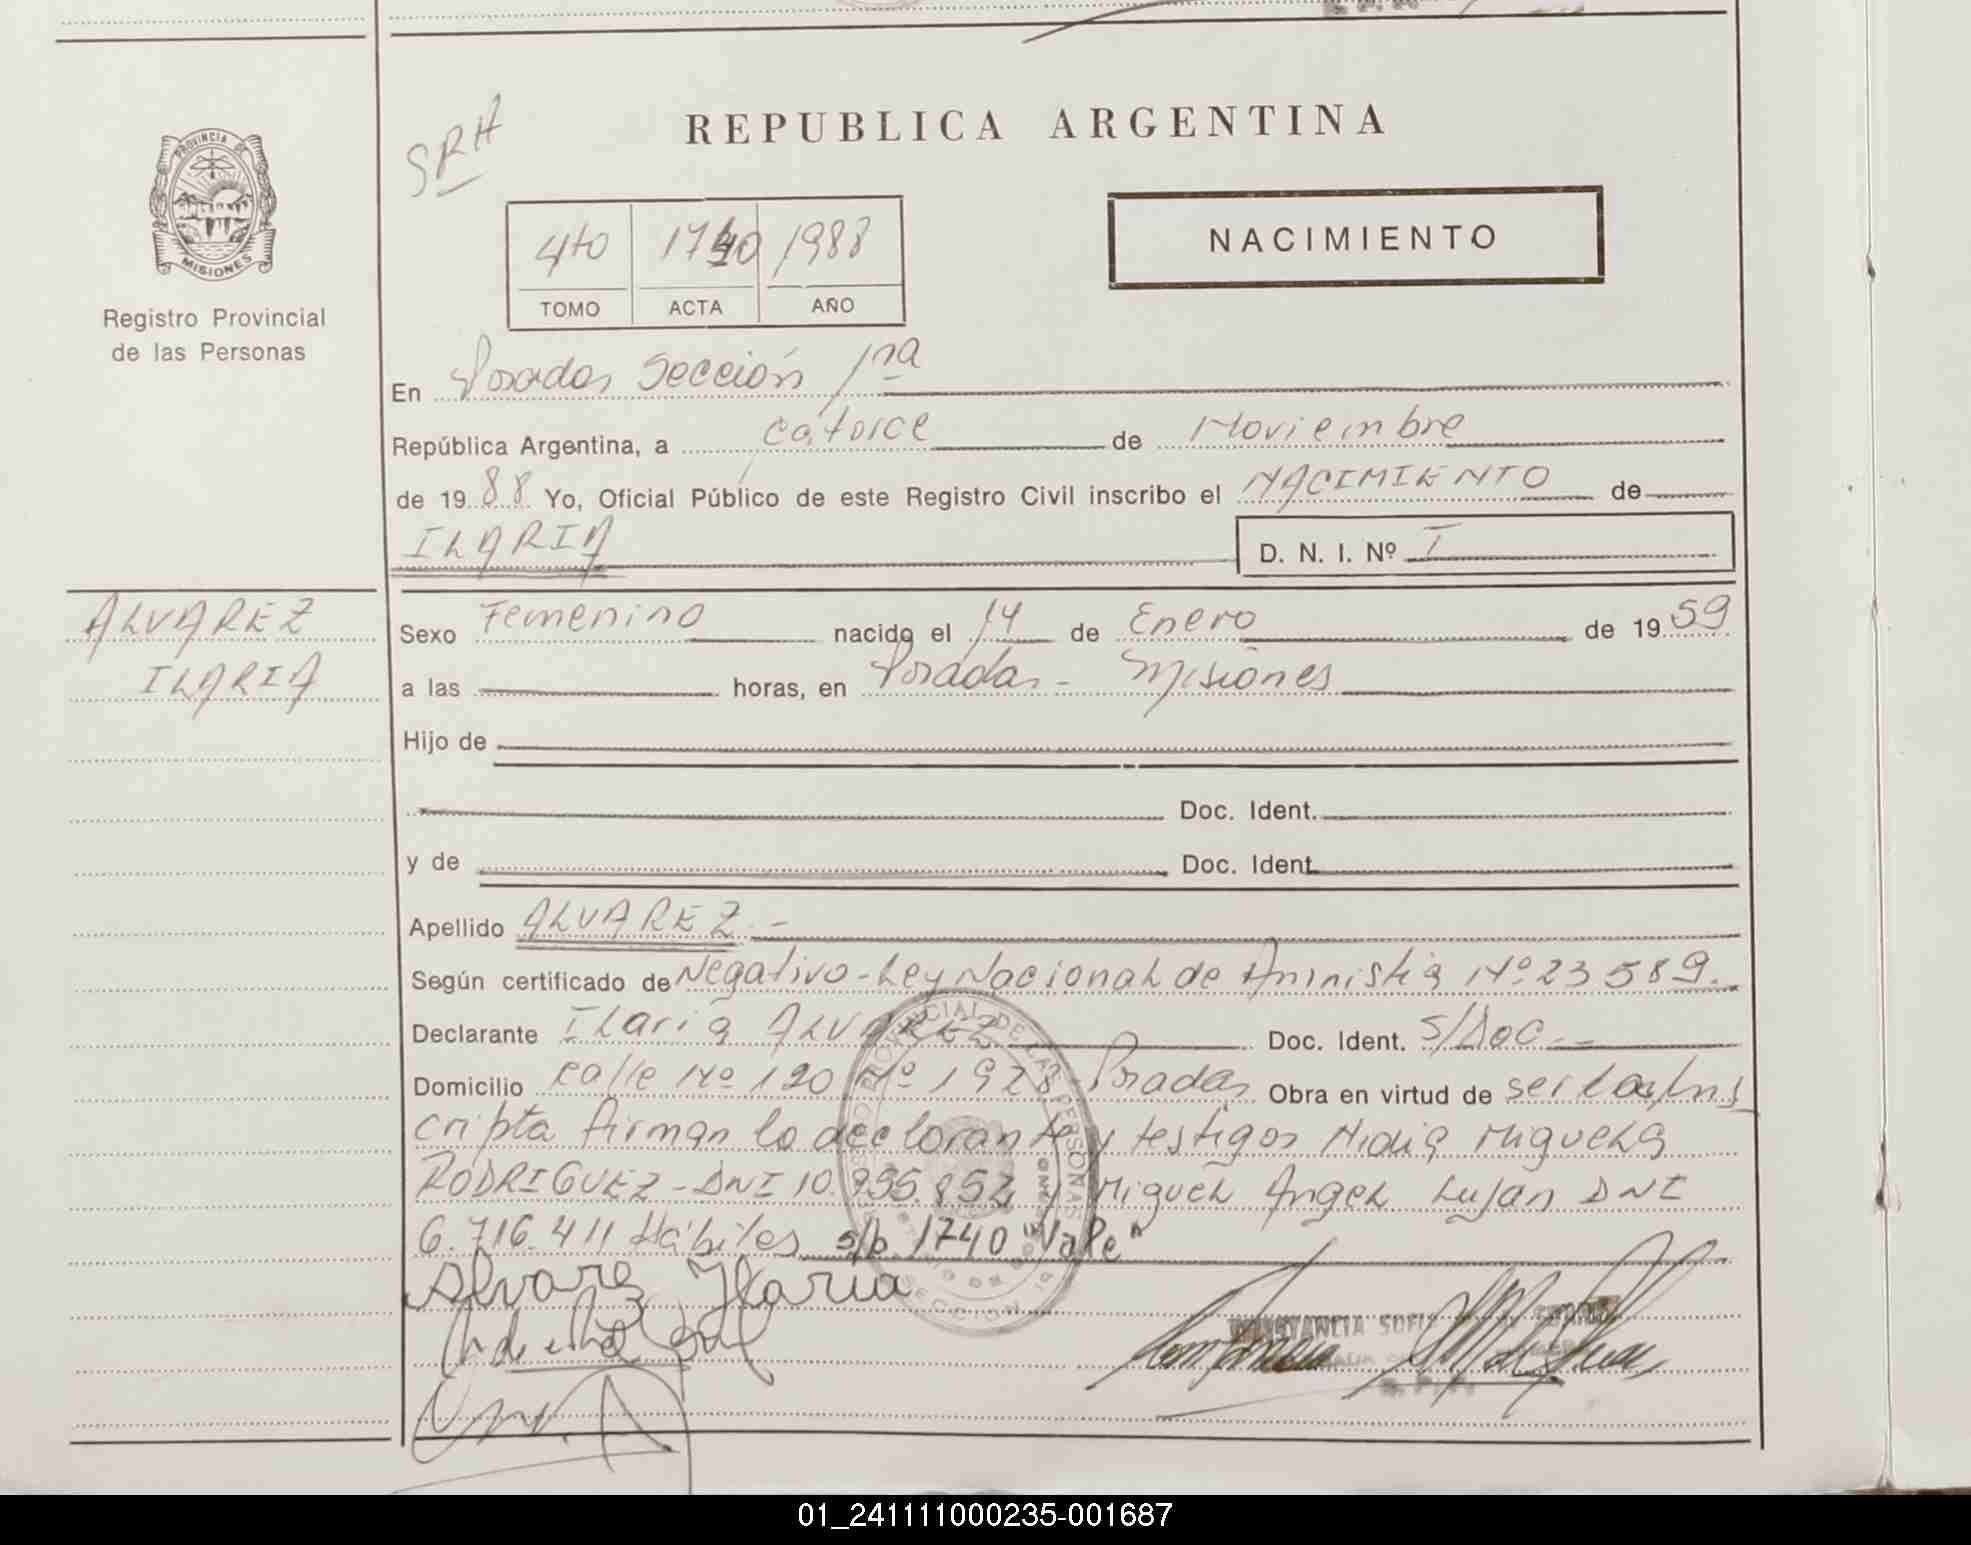 SRA
REPUBLICA ARGENTINA
PROVINCIA DE
MISIONES
Registro Provincial
de las Personas
4to 1740 1988
TOMO ACTA AÑO
NACIMIENTO
En Posadas Sección 1ra
República Argentina, a catorce de Noviembre
de 1988 Yo, Oficial Público de este Registro Civil inscribo el NACIMIENTO de
ILARIA D. N. I. Nº I
ALVAREZ
ILARIA
Sexo Femenino nacida el 14 de Enero de 1959
a las horas, en Posadas - Misiones
Hijo de
Doc. Ident.
y de Doc. Ident
Apellido ALVAREZ.-
Según certificado de Negativo-Ley Nacional de Aministia Nº 23589.
Declarante Ilaria ALVAREZ Doc. Ident. S/Doc.--
Domicilio calle Nº 120 Nº 1928 Posadas Obra en virtud de ser la ins
cripta firman la declarante y testigos Nidia Miguela
RODRIGUEZ-DNI 10.955.852 y Miguel Angel Lujan DNI
6.716.411 Hábiles s/b 1740 "Vale"
Alvarez Ilaria
CONSTANCIA SOFIA
01_241111000235-001687